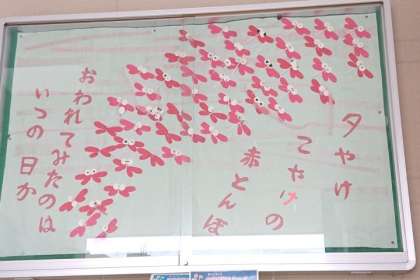 夕やけ
こやけの
赤とんぼ
おわれてみたのは
いつの日か